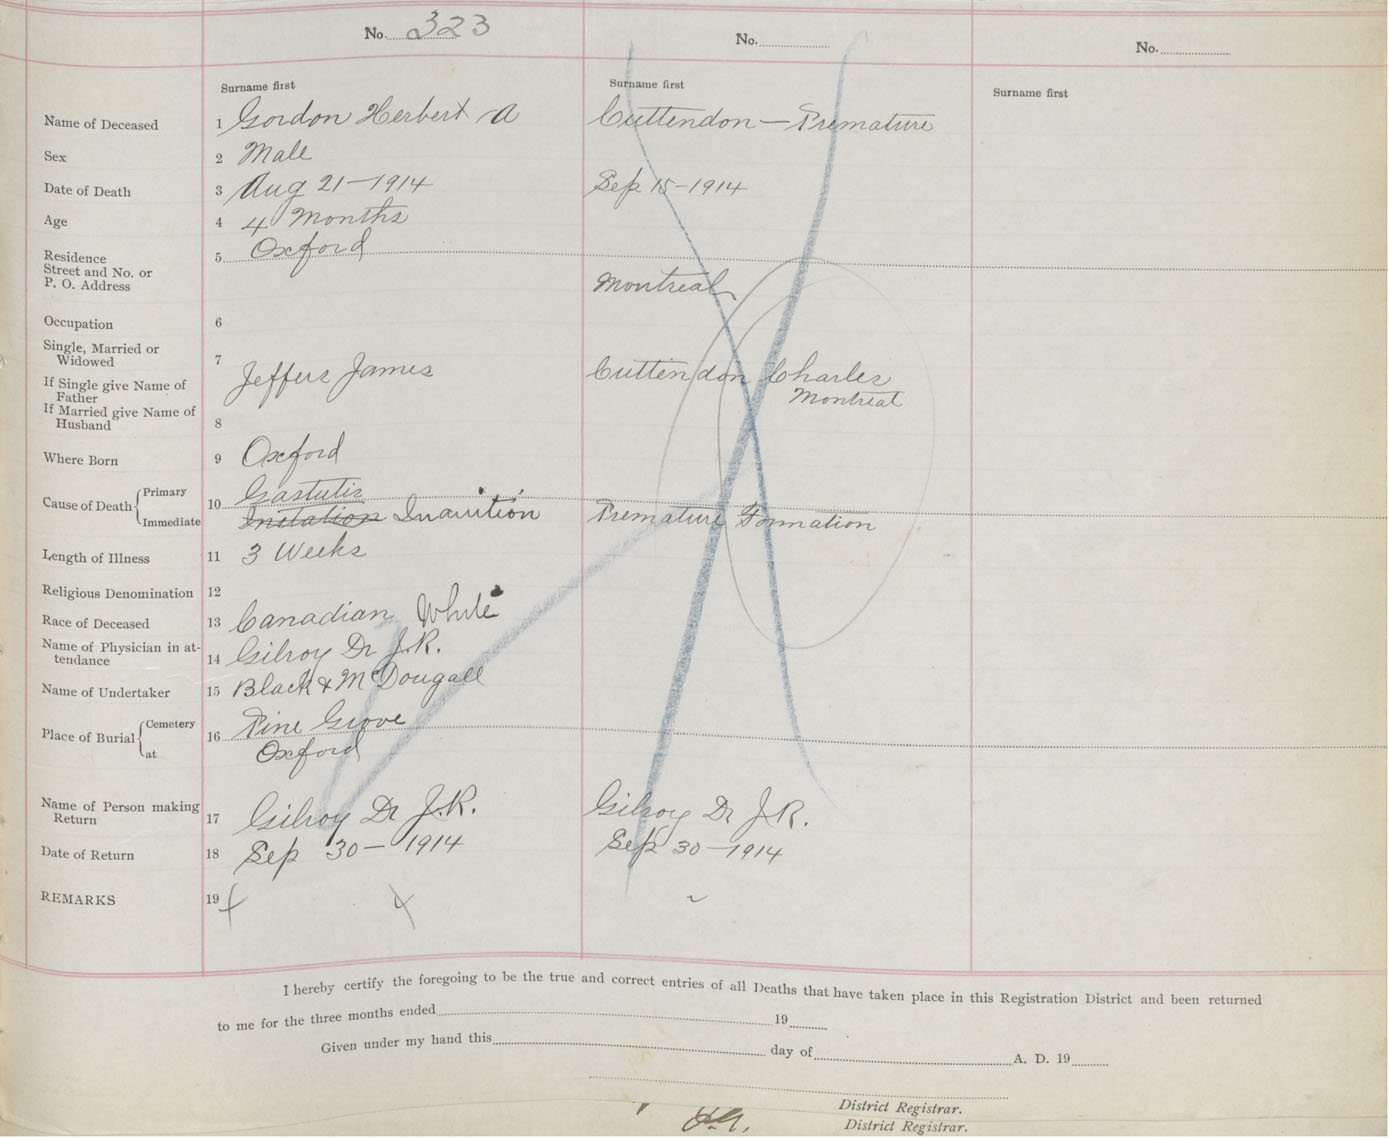 No. 323
No.
No.
Surname first
Surname first
Surname first
Name of Deceased 1 Gordon Herbert A Cuttendon — Premature
Sex 2 Male
Date of Death 3 Aug 21 - 1914 Sep 15 - 1914
Age 4 4 Months
Residence 5 Oxford
Street and No. or
P. O. Address Montreal
Occupation 6
Single, Married or
Widowed 7
If Single give Name of
Father Jeffers James Cuttendon Charles
Montreal
If Married give Name of
Husband 8
Where Born 9 Oxford
Cause of Death { Primary 10 Gastutis
Immediate Initation Inanition Premature Formation
Length of Illness 11 3 Weeks
Religious Denomination 12
Race of Deceased 13 Canadian White
Name of Physician in at-
tendance 14 Gilroy Dr J.R.
Name of Undertaker 15 Black & McDougall
Place of Burial { Cemetery 16 Pine Grove
at Oxford
Name of Person making
Return 17 Gilroy Dr J.R. Gilroy Dr J.R.
Date of Return 18 Sep 30 - 1914 Sep 30 - 1914
REMARKS 19
I hereby certify the foregoing to be the true and correct entries of all Deaths that have taken place in this Registration District and been returned
to me for the three months ended 19
Given under my hand this day of A. D. 19
District Registrar.
District Registrar.